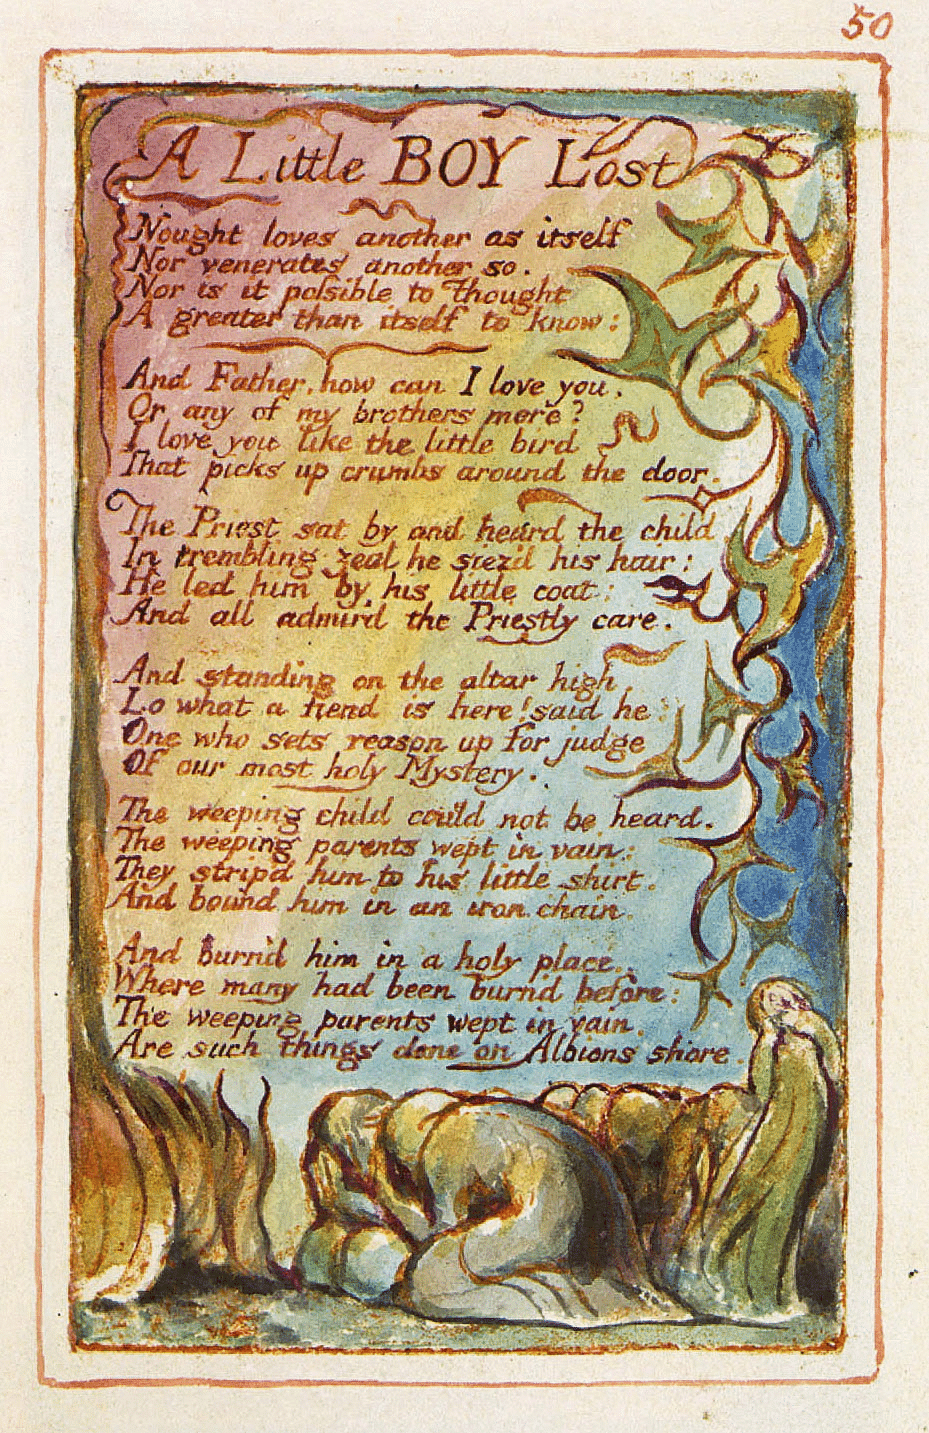 50
A Little BOY Lost
Nought loves another as itself
Nor venerates another so.
Nor is it possible to Thought
A greater than itself to know:
And Father, how can I love you,
Or any of my brothers more?
I love you like the little bird
That picks up crumbs around the door.
The Priest sat by and heard the child
In trembling zeal he siez'd his hair:
He led him by his little coat:
And all admir'd the Priestly care.
And standing on the altar high
Lo what a fiend is here! said he:
One who sets reason up for judge
Of our most holy Mystery.
The weeping child could not be heard.
The weeping parents wept in vain:
They strip'd him to his little shirt.
And bound him in an iron chain.
And burn'd him in a holy place,
Where many had been burn'd before:
The weeping parents wept in vain.
Are such things done on Albions shore.